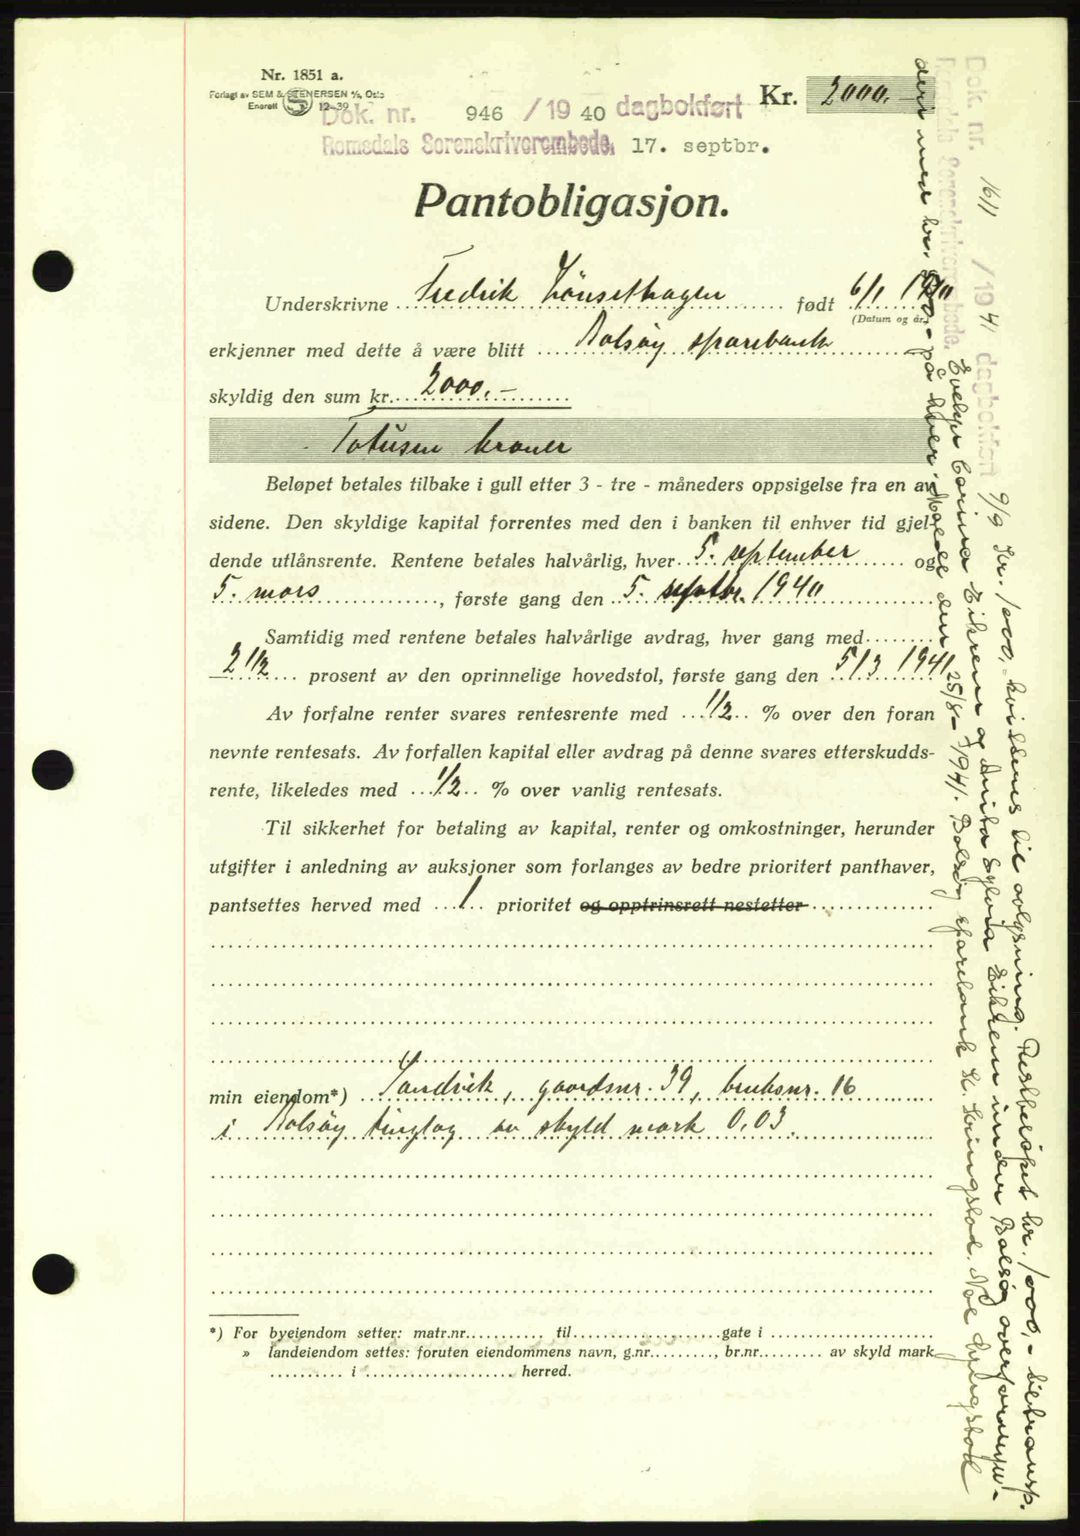 Nr. 1851 a.
Forlagt av SEM & STENERSEN A/S, Oslo
Enerett 12-39
Kr. 2000.-
Dok. nr. 946 / 19 40 dagbokført
Romsdals Sorenskriverembede, 17. septbr.
Pantobligasjon.
Underskrivne Fredrik Lönsethagen født 6/1 1911
(Datum og år)
erkjenner med dette å være blitt Bolsøy sparebank
skyldig den sum kr. 2000,-
Totusen kroner
Beløpet betales tilbake i gull etter 3 - tre - måneders oppsigelse fra en av
sidene. Den skyldige kapital forrentes med den i banken til enhver tid gjel-
dende utlånsrente. Rentene betales halvårlig, hver 5. september og
5. mars, første gang den 5. septbr. 1940
Samtidig med rentene betales halvårlige avdrag, hver gang med
2 1/2 prosent av den oprinnelige hovedstol, første gang den 5/3 1941
Av forfalne renter svares rentesrente med 1/2 % over den foran
nevnte rentesats. Av forfallen kapital eller avdrag på denne svares etterskudds-
rente, likeledes med 1/2 % over vanlig rentesats.
Til sikkerhet for betaling av kapital, renter og omkostninger, herunder
utgifter i anledning av auksjoner som forlanges av bedre prioritert panthaver,
pantsettes herved med 1 prioritet og opptrinsrett nestetter
min eiendom*) Sandvik, gaardsnr. 39, bruksnr. 16
i Bolsøy tinglag av skyld mark 0,03.
*) For byeiendom setter: matr.nr. til gate i
» landeiendom settes: foruten eiendommens navn, g.nr., br.nr. av skyld mark
i herred.
Dok. nr. 1611 / 1941 dagbokført 9/9
Romsdals Sorenskriverembede.
Kr. 1000,- kvitteres til avlysning. Restbeløpet kr. 1000,- transp.
Evelyn Corina Eikrem og Anita Sylvia Eikrem under Bolsøy overformyn-
deri med kr. 500,- på hver. Molde den 25/8-1941. Bolsøy sparebank K. Kringstad.